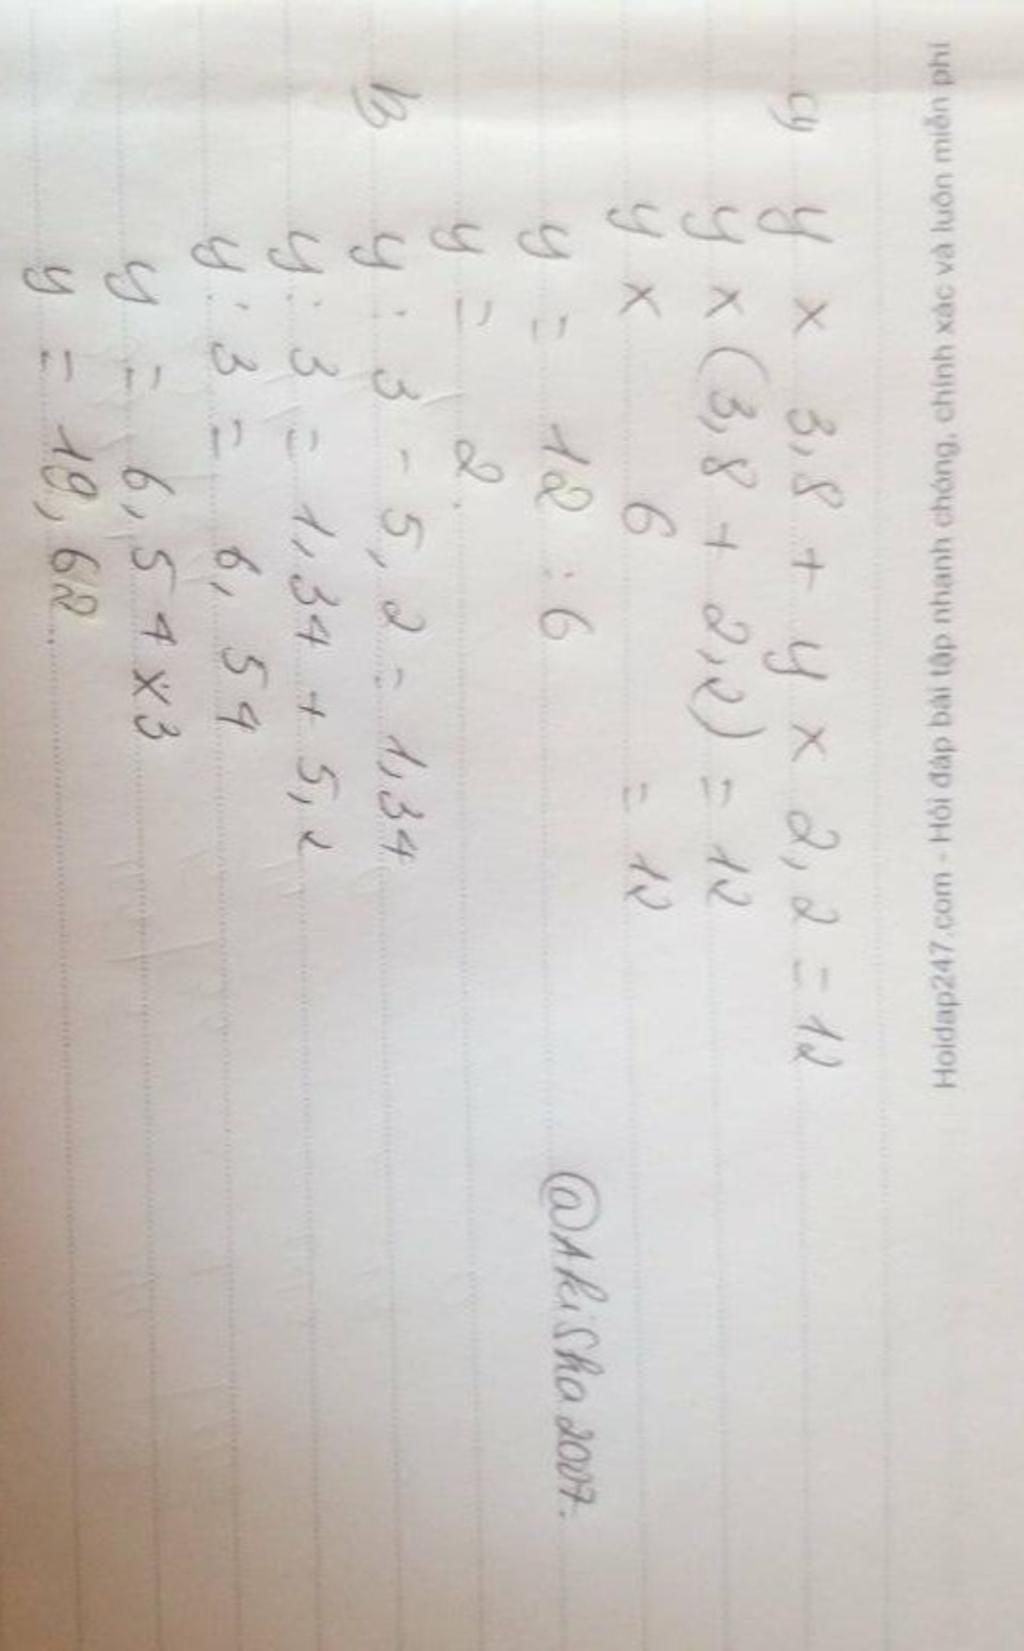 Hoidap247.com - Hỏi đáp bài tập nhanh chóng, chính xác và luôn miễn phí
a/ y x 3,8 + y x 2,2 = 12
y x (3,8 + 2,2) = 12
y x 6 = 12
y = 12 : 6
y = 2.
b/ y : 3 - 5,2 = 1,34
y : 3 = 1,34 + 5,2
y : 3 = 6,54
y = 6,54 x 3
y = 19,62.
@Akisha2007.